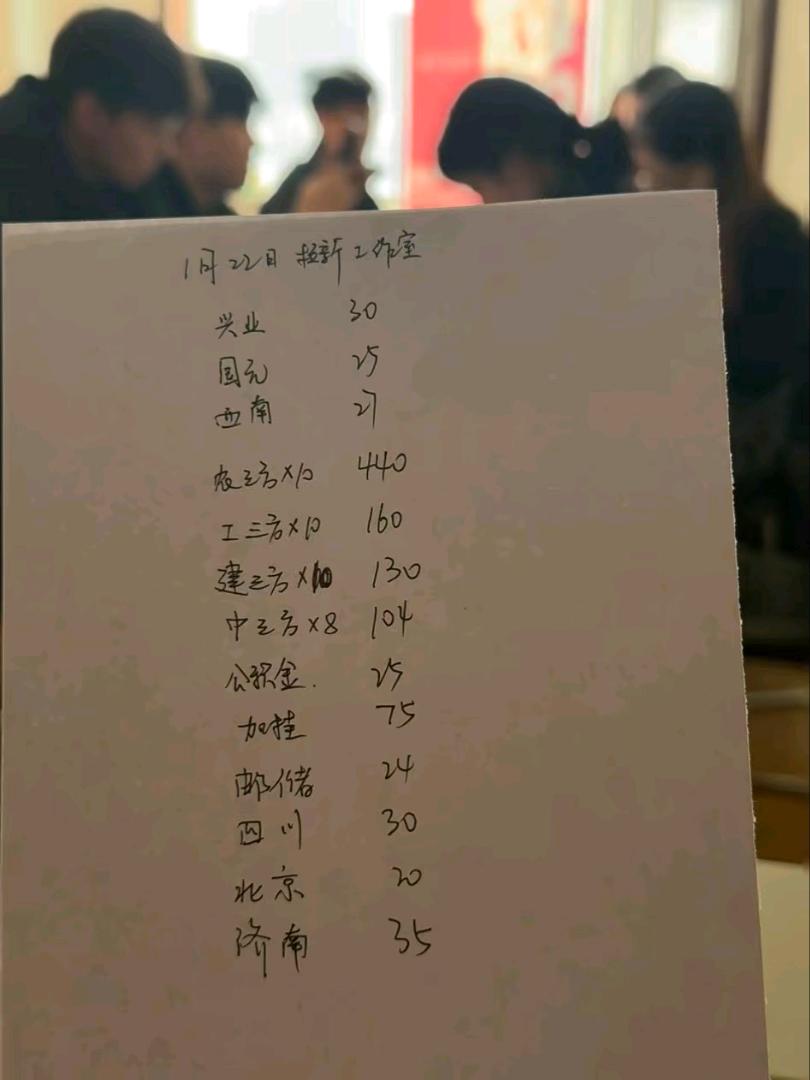 1月22日 拉新工作室
兴业 30
国元 25
西南 27
农三方×10 440
工三方×10 160
建三方×10 130
中三方×8 104
公积金. 25
加挂 75
邮储 24
四川 30
北京 20
济南 35